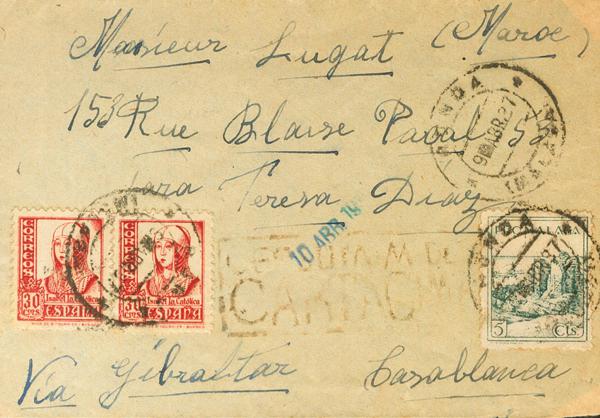 Monsieur Lugat (Maroc)
153 Rue Blaise Pascal 53
Para Teresa Diaz
RONDA
9 ABR.37
(MALAGA)
10 ABR 19
CORREOS
30 CTS.
Isabel la Católica
ESPAÑA
CORREOS
30 CTS.
Isabel la Católica
ESPAÑA
RONDA
5 Cts
Via Gibraltar Casablanca